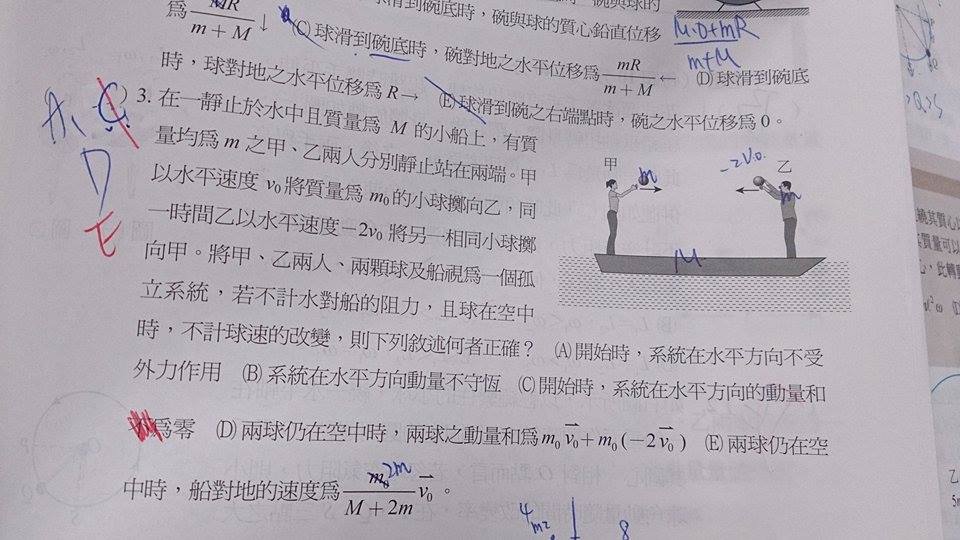 為 MR/(m + M) ↓ (C)球滑到碗底時,碗與球的質心鉛直位移 M·0+mR/(m+M)
時,球對地之水平位移為 R→ (E)球滑到碗之右端點時,碗之水平位移為 0。
球滑到碗底時,碗對地之水平位移為 mR/(m + M) ← (D)球滑到碗底
A、C
D
E
) 3. 在一靜止於水中且質量為 M 的小船上,有質
量均為 m 之甲、乙兩人分別靜止站在兩端。甲
以水平速度 v₀ 將質量為 m₀ 的小球擲向乙,同
一時間乙以水平速度 −2v₀ 將另一相同小球擲
向甲。將甲、乙兩人、兩顆球及船視為一個孤
立系統,若不計水對船的阻力,且球在空中
時,不計球速的改變,則下列敘述何者正確? (A)開始時,系統在水平方向不受
外力作用 (B)系統在水平方向動量不守恆 (C)開始時,系統在水平方向的動量和
為零 (D)兩球仍在空中時,兩球之動量和為 m₀v₀⃗ + m₀(−2v₀⃗) (E)兩球仍在空
中時,船對地的速度為 m₀/(M + 2m) v₀⃗。
2m
甲
m
-2v.0.
乙
m
M
4
m²
8